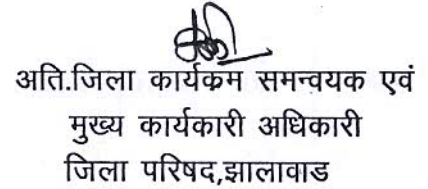 अति.जिला कार्यकम समन्वयक एवं
मुख्य कार्यकारी अधिकारी
जिला परिषद,झालावाड